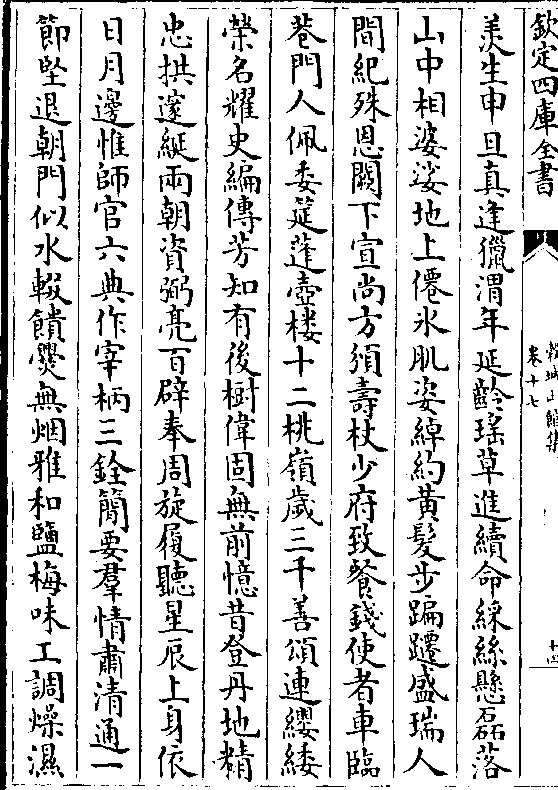 欽定四庫全書
榖城山館集
卷十七
十四
羙生申旦真逢獵渭年延齡瑤草進續命綵絲懸磊落
山中相婆娑地上僊氷肌姿綽約黃髮步蹁躚盛瑞人
間紀殊恩闕下宣尚方頒壽杖少府致餐錢使者車臨
巷門人佩委筵蓬壺樓十二桃嶺歲三千善頌連纓緌
榮名耀史編傳芳知有後樹偉固無前憶昔登丹地精
忠拱邃綖兩朝資弼亮百辟奉周旋履聽星辰上身依
日月邊惟師官六典作宰柄三銓簡要羣情肅清通一
節堅退朝門似水輟饋爨無烟雅和鹽梅味工調燥濕